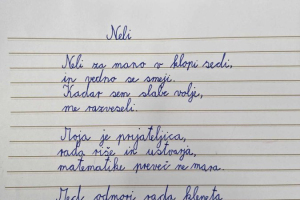 Neli
Neli za mano v klopi sedi,
in vedno se smeji.
Kadar sem slabe volje,
me razveseli.
Moja je prijateljica,
rada riše in ustvarja,
matematike preveč ne mara.
Med odmori rada klepeta